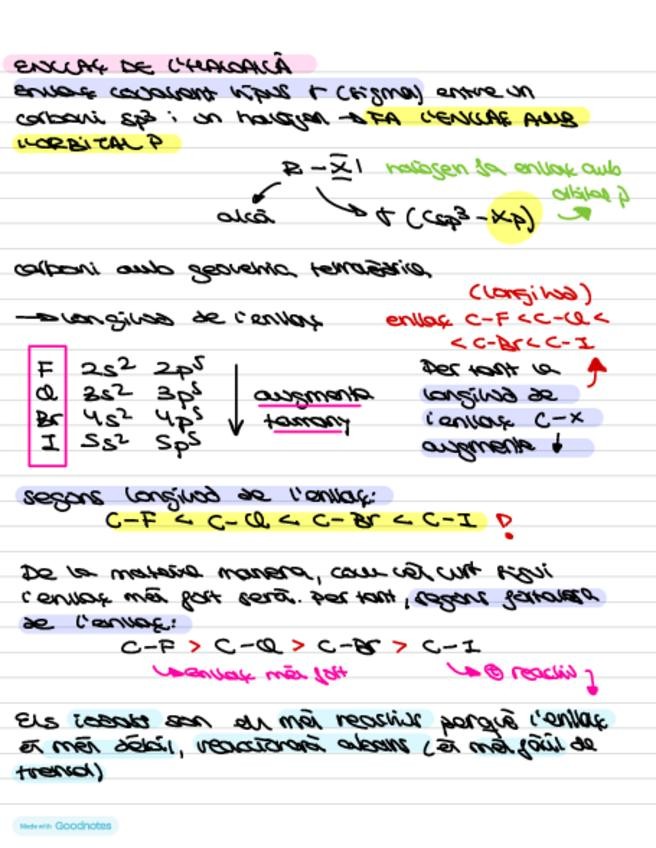 ENLLAÇ DE L'HALOALCÀ
Enllaç covalent tipus σ (sigma) entre un
carboni sp³ i un halogen → FA L'ENLLAÇ AMB
L'ORBITAL P
R - X̅| halogen fa enllaç amb
orbital p
alcà σ (Csp³ - Xp)
carboni amb geometria tetraèdrica
→ longitud de l'enllaç
(longitud)
enllaç C-F < C-Cl <
< C-Br < C-I
F 2s² 2p⁵
Cl 3s² 3p⁵
Br 4s² 4p⁵
I 5s² 5p⁵
augmenta
tamany
Per tant la
longitud de
l'enllaç C-X
augmenta ↓
segons longitud de l'enllaç:
C-F < C-Cl < C-Br < C-I
De la mateixa manera, com més curt sigui
l'enllaç més fort serà. Per tant, segons fortalesa
de l'enllaç:
C-F > C-Cl > C-Br > C-I
↳ enllaç més fort ↳ ⊕ reactiu
Els són els més reactius perquè l'enllaç
és més dèbil, reaccionarà abans (és més fàcil de
trencar)
Made with Goodnotes